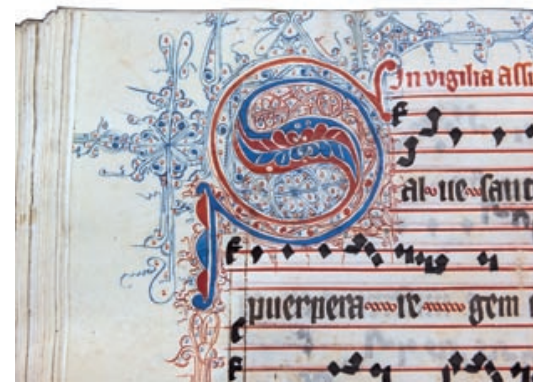 In vigilia assu
Sal ue sanct
puerpera re gem